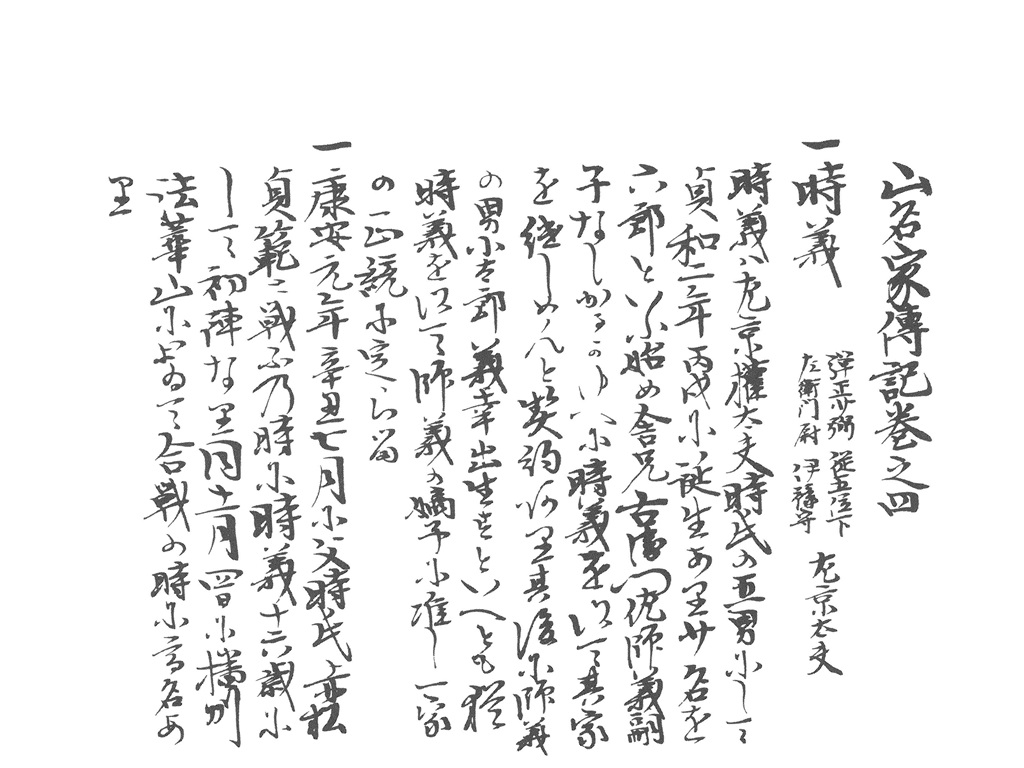 山名家傳記巻之四
一時義
弾正少弼 従五位下
左衛門尉 伊豫守
左京太夫
時義ハ左京權太夫時氏の五男にして
貞和二年丙戌に誕生あり少名を
六郎といふ始め舎兄右衛門佐師義嗣
子なしかるかゆへに時義を以て其家
を継しめんと契約あり其後に師義
の男小太郎義幸出生すといへとも猶
時義を以て師義の嫡子に准し一家
の正統に定らる
一康安元年辛丑七月に父時氏赤松
貞範と戦ふ乃時に時義十六歳に
して初陣なり同十一月四日に播州
法華山におゐて合戦の時に高名あ
り